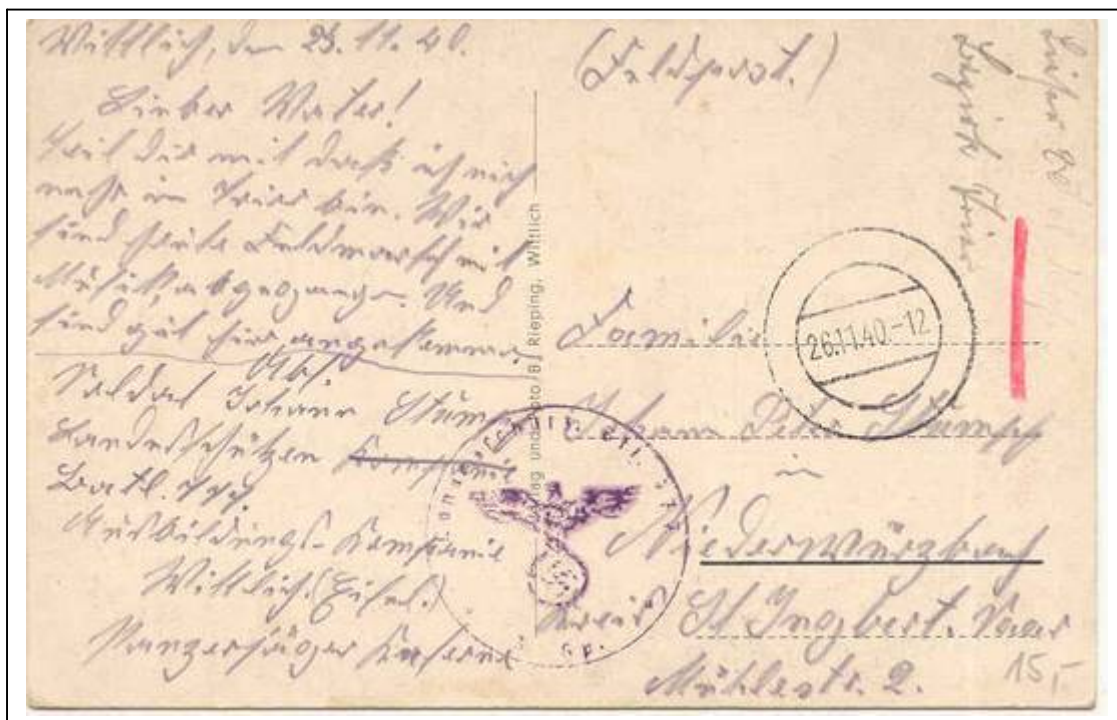 Wittlich, den 25. 11. 40.
Lieber Vater!
Teil dir mit daß ich nicht
mehr in Trier bin. Wir
sind heute Feldmarsch mit
Musik, abgegangen. Und
sind gut hier angekommen.
Abs.
Soldat Johann Stumpf
Landesschützen Kompanie
Batl.
Ausbildungs-Kompanie
Wittlich. (Eifel.)
Panzerjäger Kaserne
Verlag und Photo B. Rieping, Wittlich
(Feldpost.)
Bezirk Trier
26.11.40.-12
Familie
Johann Peter Stumpf
in
Niederwürzbach
Kreis St Ingbert. Saar
Mühlestr. 2.
15,-